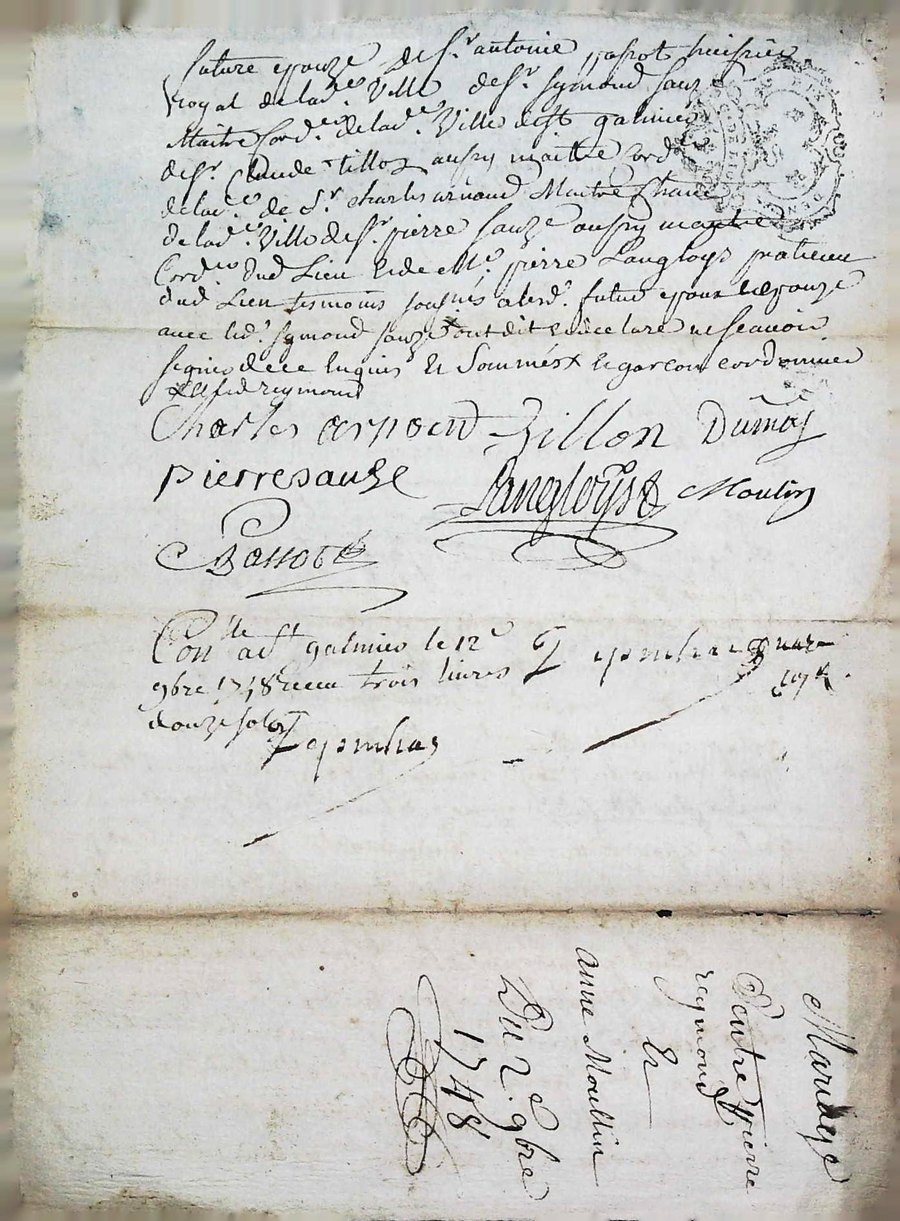 future epouze de Sr. antoine passot huissier
Royal de lad.e Ville de Sr. Symond Sauze
Maitre Cord.er de lad.e Ville de St galmier
de Sr. Claude tillon aussy maitre Cord.er
de lad.e de Sr. charles arnaud Maitre
de lad.e Ville de Sr. pierre Sauze aussy maitre
Cord.er dud Lieu et de Me. pierre Langloys praticien
dud. Lieu tesmoins sousnés a led. futur epoux et epouze
avec led. Symond Sauze ont dit et declaré ne scavoir
signer de ce enquis et Sommés x et garcon cordonnier
x led reymond
Charles arnoud Tillon Dumas
pierre sauze Langloys Moulin
Passot
Con.lle a St galmier le 12e
9bre 1748 receu trois livres
douze sols
Mariage
D'entre pierre
reymond
Et
anne Moullin
Du 2e. 9bre
1748